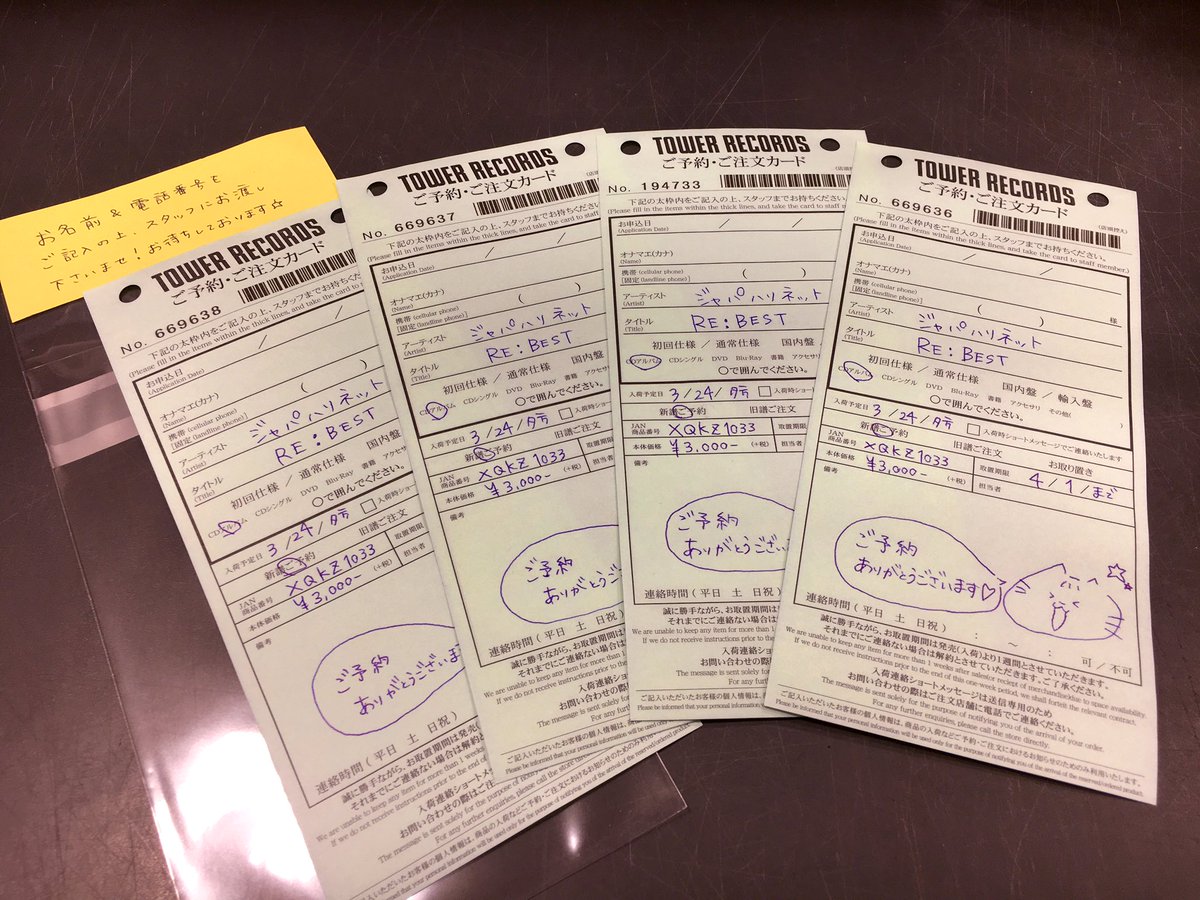 お名前 & 電話番号を
ご記入の上、スタッフにお渡し
下さいませ！お待ちしております☆
TOWER RECORDS
ご予約・ご注文カード
No. 669638
下記の太枠内をご記入の上、スタッフまでお持ちくださ
(Please fill in the items within the thick lines, and take the card to sta
お申込日
(Application Date)
/ /
オナマエ(カナ)
(Name)
携帯 (cellular phone)
[固定 (landline phone)]
( )
アーティスト
(Artist)
ジャパハリネット
タイトル
(Title)
RE:BEST
初回仕様 / 通常仕様 国内盤
CDアルバム CDシングル DVD Blu-Ray 書籍
○で囲んでください。
入荷予定日 3/24/夕方 入荷時ショー
新譜ご予約 旧譜ご注文
JAN
商品番号 XQKZ1033 取置期限
本体価格 ¥3,000- (+税) 担当者
備考
ご予約
ありがとうございま
連絡時間 ( 平日 土 日祝 )
TOWER RECORDS
ご予約・ご注文カード
No. 669637
下記の太枠内をご記入の上、スタッフまでお持ちください。
(Please fill in the items within the thick lines, and take the card to staff
お申込日
(Application Date)
/ /
オナマエ(カナ)
(Name)
携帯 (cellular phone)
[固定 (landline phone)]
( )
アーティスト
(Artist)
ジャパハリネット
タイトル
(Title)
RE:BEST
初回仕様 / 通常仕様 国内盤
CDアルバム CDシングル DVD Blu-Ray 書籍 アクセサリ
○で囲んでください。
入荷予定日 3/24/夕方 入荷時ショー
新譜ご予約 旧譜ご注文
JAN
商品番号 XQKZ1033 取置期限
本体価格 ¥3,000- (+税) 担当者
備考
ご予約
ありがとうござい
連絡時間 ( 平日 土 日祝 )
TOWER RECORDS
ご予約・ご注文カード
No. 194733
下記の太枠内をご記入の上、スタッフまでお持ちください。
(Please fill in the items within the thick lines, and take the card to staff
お申込日
(Application Date)
/ /
オナマエ(カナ)
(Name)
携帯 (cellular phone)
[固定 (landline phone)]
( )
アーティスト
(Artist)
ジャパハリネット
タイトル
(Title)
RE:BEST
初回仕様 / 通常仕様 国内盤
CDアルバム CDシングル DVD Blu-Ray 書籍 アクセサリ
○で囲んでください。
入荷予定日 3/24/夕方 入荷時ショート
新譜ご予約 旧譜ご注文
JAN
商品番号 XQKZ1033 取置期限
本体価格 ¥3,000- (+税) 担当者
備考
ご予約
ありがとうござい
連絡時間 ( 平日 土 日祝 )
TOWER RECORDS
ご予約・ご注文カード
(店頭控え)
No. 669636
下記の太枠内をご記入の上、スタッフまでお持ちください。
(Please fill in the items within the thick lines, and take the card to staff member.)
お申込日
(Application Date)
/ /
オナマエ(カナ)
(Name)
様
携帯 (cellular phone)
[固定 (landline phone)]
( )
アーティスト
(Artist)
ジャパハリネット
タイトル
(Title)
RE:BEST
初回仕様 / 通常仕様 国内盤 / 輸入盤
CDアルバム CDシングル DVD Blu-Ray 書籍 アクセサリ その他( )
○で囲んでください。
入荷予定日 3/24/夕方 入荷時ショートメッセージでご連絡いたします
新譜ご予約 旧譜ご注文 お取り置き
JAN
商品番号 XQKZ1033 取置期限 4/1/まで
本体価格 ¥3,000- (+税) 担当者
備考
ご予約
ありがとうございます♡
連絡時間 ( 平日 土 日祝 ) : ～ 可 / 不可
誠に勝手ながら、お取置期間は発売(入荷)より1週間とさせていただきます。
それまでにご連絡ない場合は解約とさせていただきます。ご了承ください。
We are unable to keep any item for more than 1 weeks after sales(or reciept of merchandise)due to space availability.
If we do not receive instructions prior to the end of this one-week period, we shall forfeit the relevant contract.
入荷連絡ショートメッセージは送信専用のため
お問い合わせの際はご注文店舗に電話でご連絡ください。
The message is sent solely for the purpose of notifying you of the arrival of your order.
For any further enquiries, please call the store directly.
ご記入いただいたお客様の個人情報は、商品の入荷などご予約・ご注文におけるお知らせのためのみ利用いたします。
Please be informed that your personal information will be used only for the purpose of notifying you of the arrival of the reserved/ordered product.